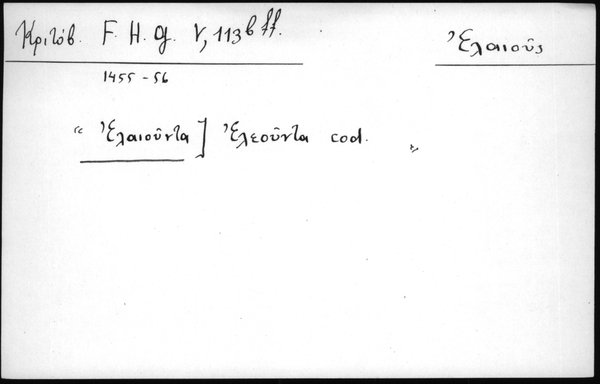 Κριτόβ. F. H. G. V, 113b ff.
Ἐλαιοῦς
1455-56
“ Ἐλαιοῦντα] Ἐλεοῦντα cod. ”